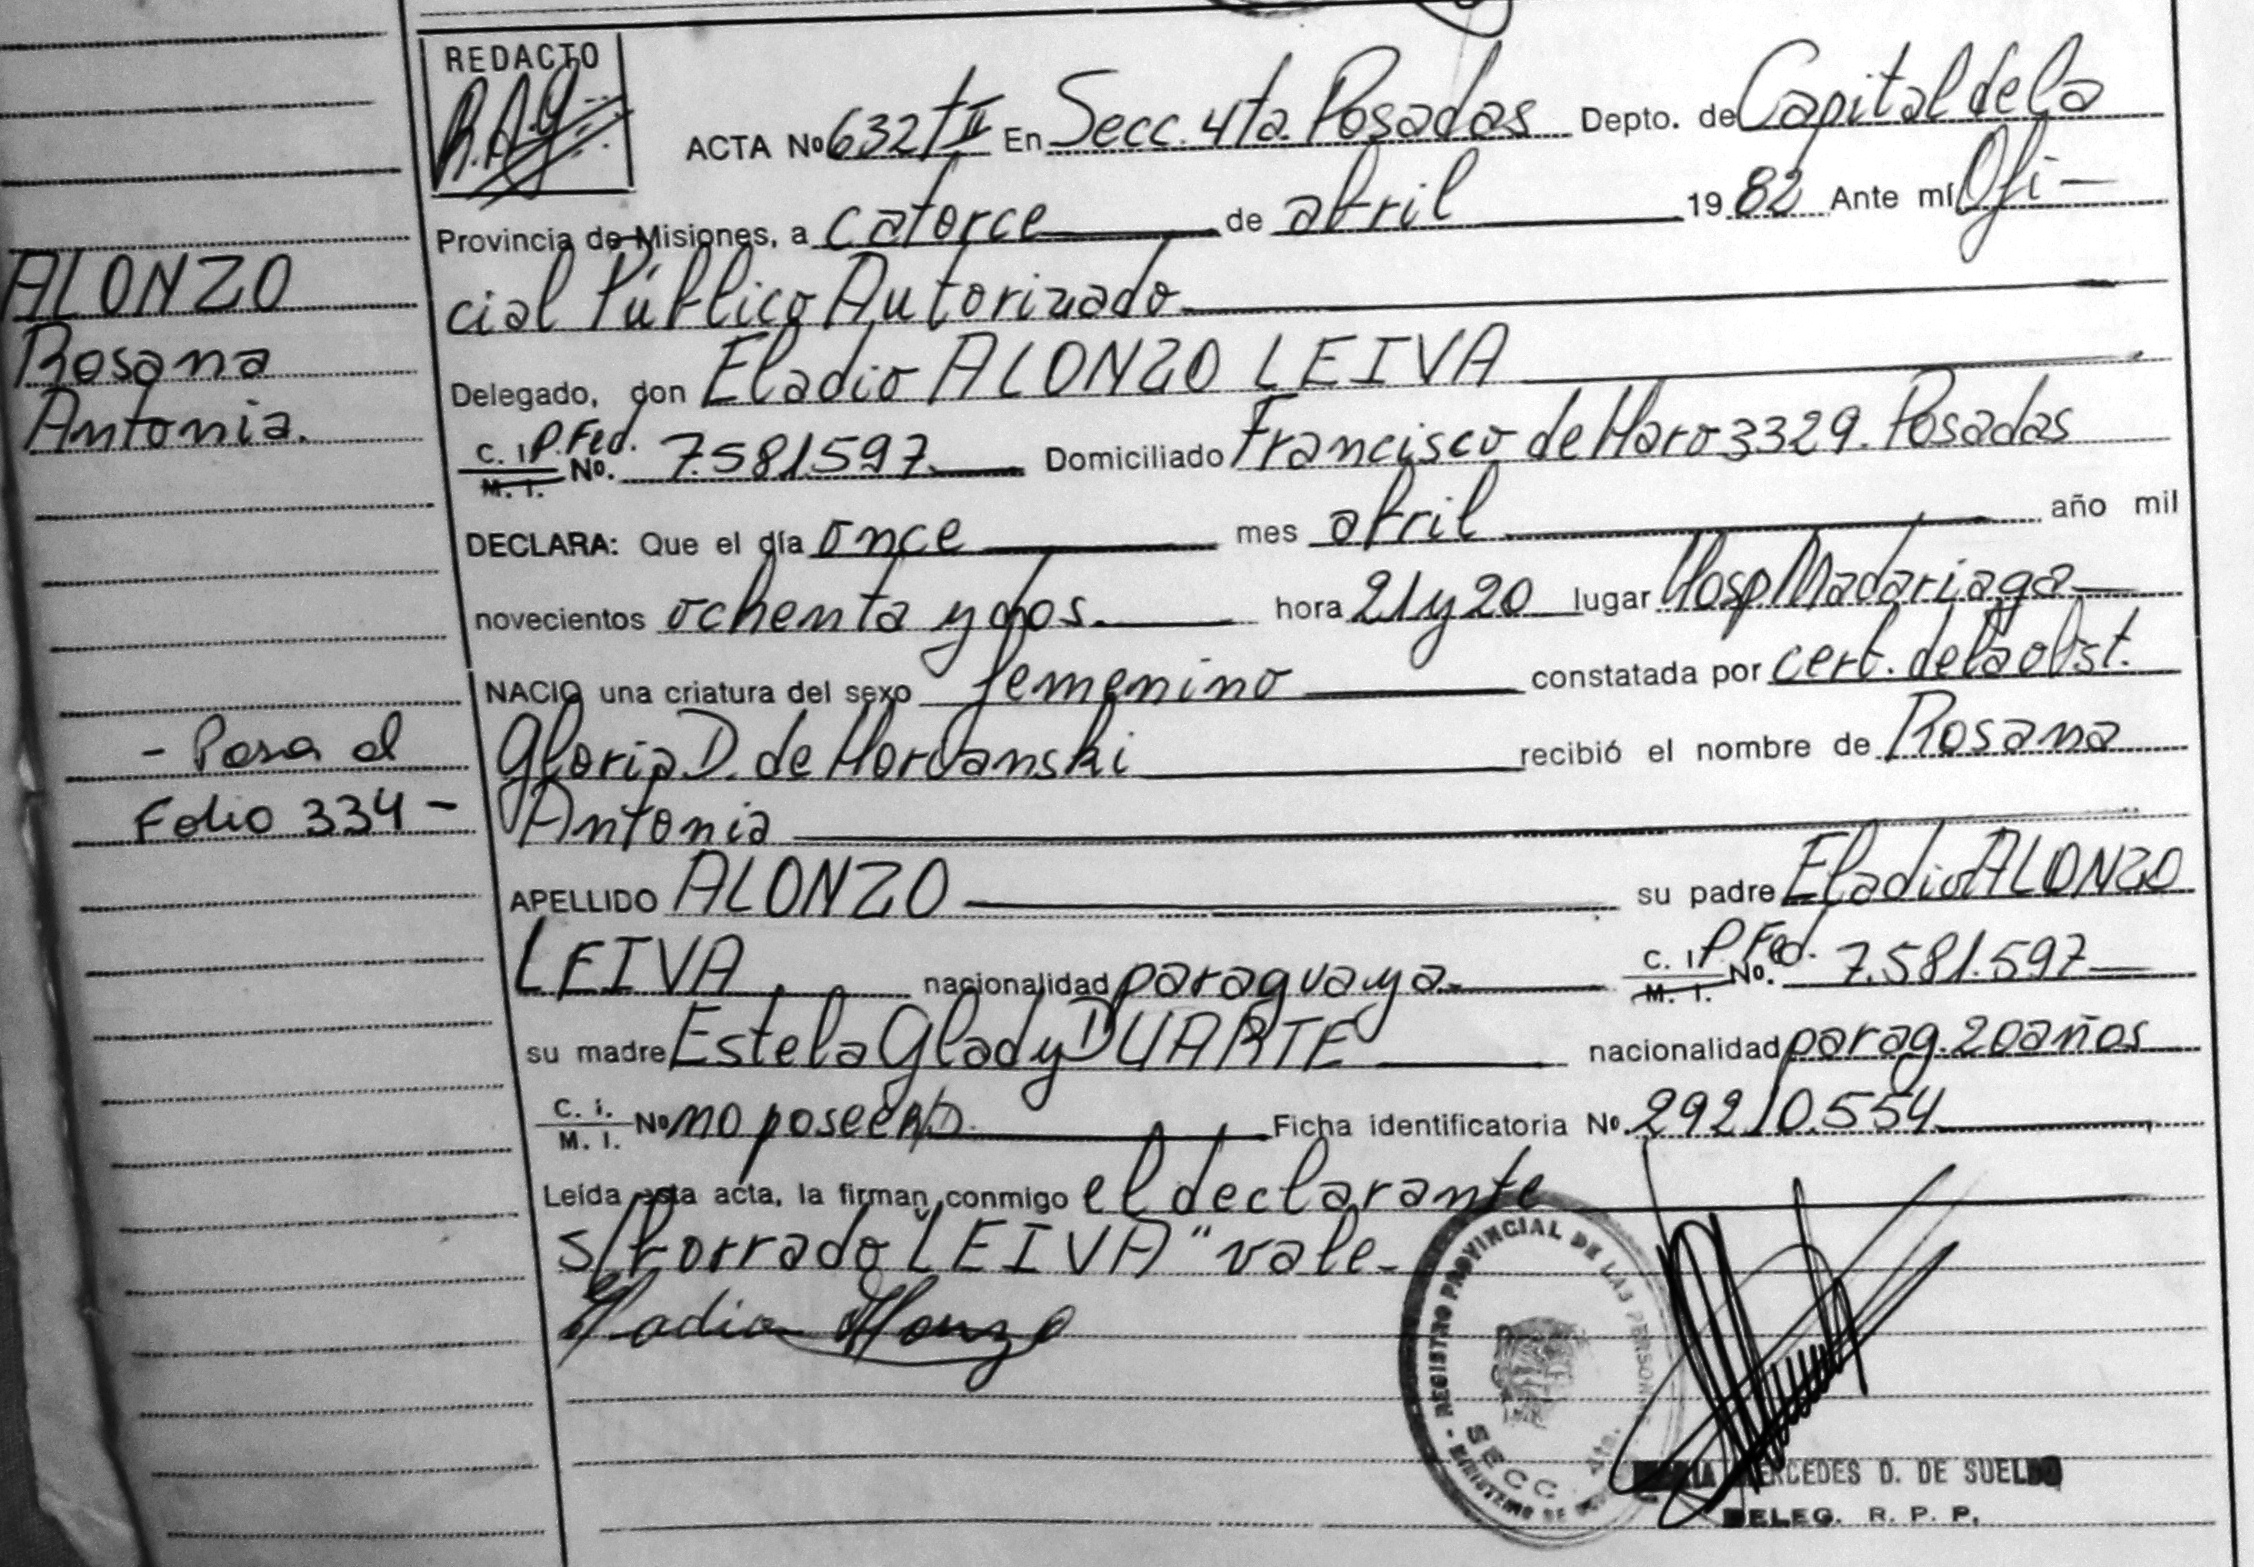 REDACTO
ACTA Nº 632 tII En Secc. 4ta. Posadas Depto. de Capital de la
Provincia de Misiones, a catorce de abril 1982 Ante mí Ofi-
cial Público Autorizado
Delegado, don Eladio ALONZO LEIVA
C. I. P. Fed. M. I. No. 7.581.597 Domiciliado Francisco de Haro 3329. Posadas
DECLARA: Que el día once mes abril año mil
novecientos ochenta y dos. hora 21 y 20 lugar Hosp Madariaga
NACIO una criatura del sexo femenino constatada por cert. de la obst.
Gloria D. de recibió el nombre de Rosana
Antonia
APELLIDO ALONZO su padre Eladio ALONZO
LEIVA nacionalidad paraguaya C. I. P. Fed. M. I. No. 7.581.597
su madre Estela Glady DUARTE nacionalidad parag. 20 años
C. i. M. I. Nº no posee Ficha identificatoria Nº 29210.554
Leída esta acta, la firman conmigo el declarante
s/borrado LEIVA" vale-
Eladio Alonzo
ALONZO
Rosana
Antonia.
- Pasa al
Folio 334 -
REGISTRO PROVINCIAL DE LAS PERSONAS
SECC. 4ta.
MINISTERIO DE
MERCEDES D. DE SUELDO
DELEG. R. P. P.